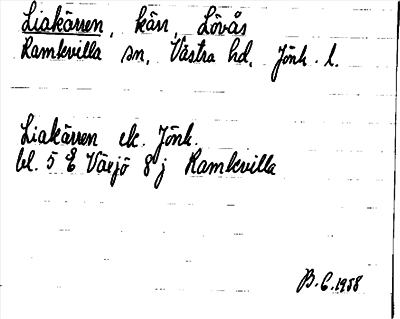 Liakärren, kärr, Lövås
Ramkvilla sn, Västra hd, Jönk. l.
Liakärren ek. Jönk.
bl. 5 E Växjö 8 j Ramkvilla
B.C. 1958